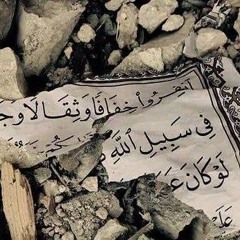 ٱنفِرُوا۟ خِفَافًا وَثِقَالًا وَجَ
فِى سَبِيلِ ٱللَّهِ
لَوْ كَانَ عَ